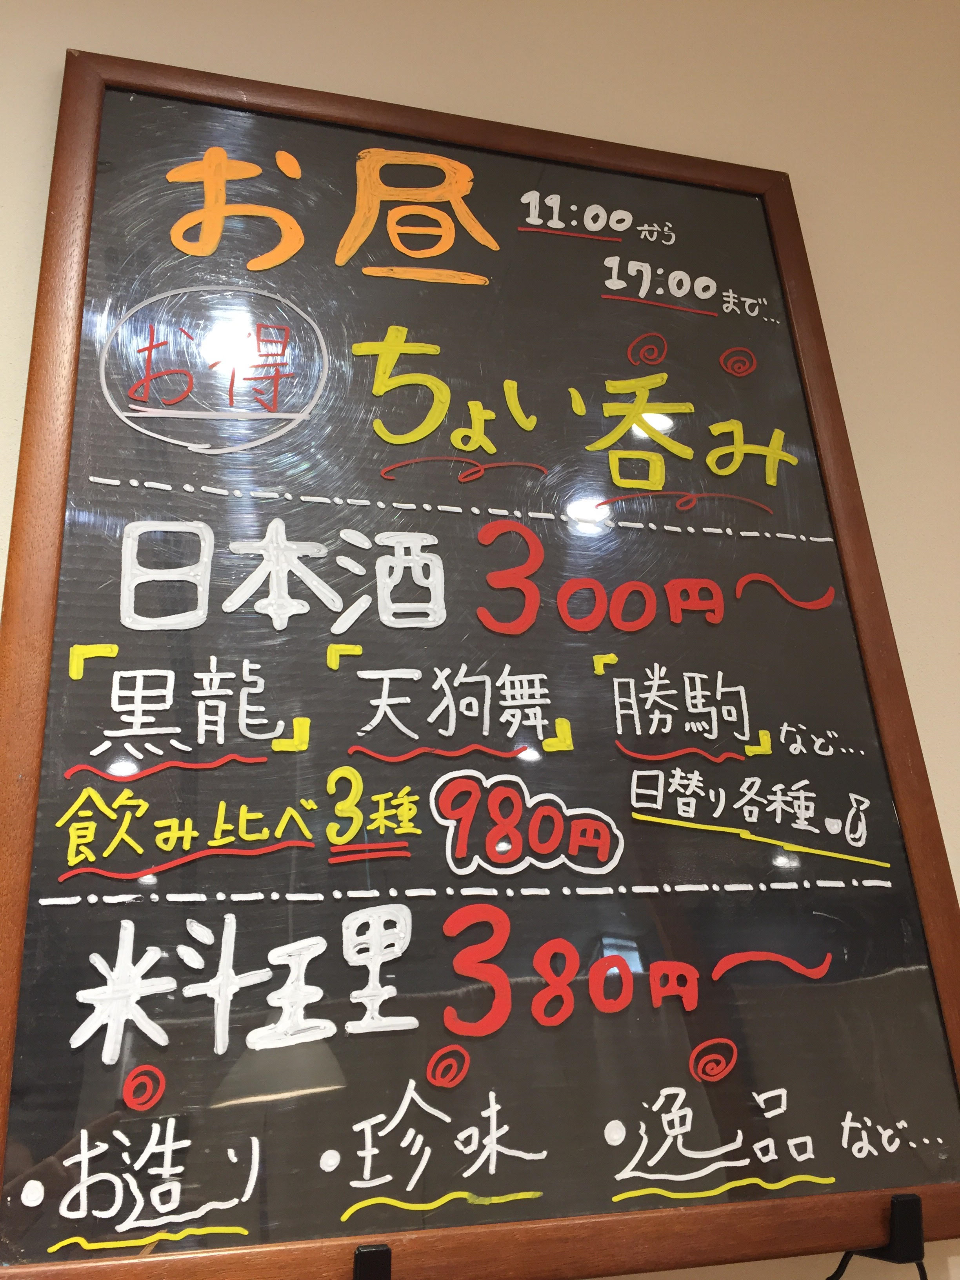 お昼 11:00から
17:00まで…
お得 ちょい呑み
日本酒 300円〜
「黒龍」「天狗舞」「勝駒」など…
飲み比べ3種 980円 日替り各種。
料理 380円〜
・お造り ・珍味 ・逸品 など…